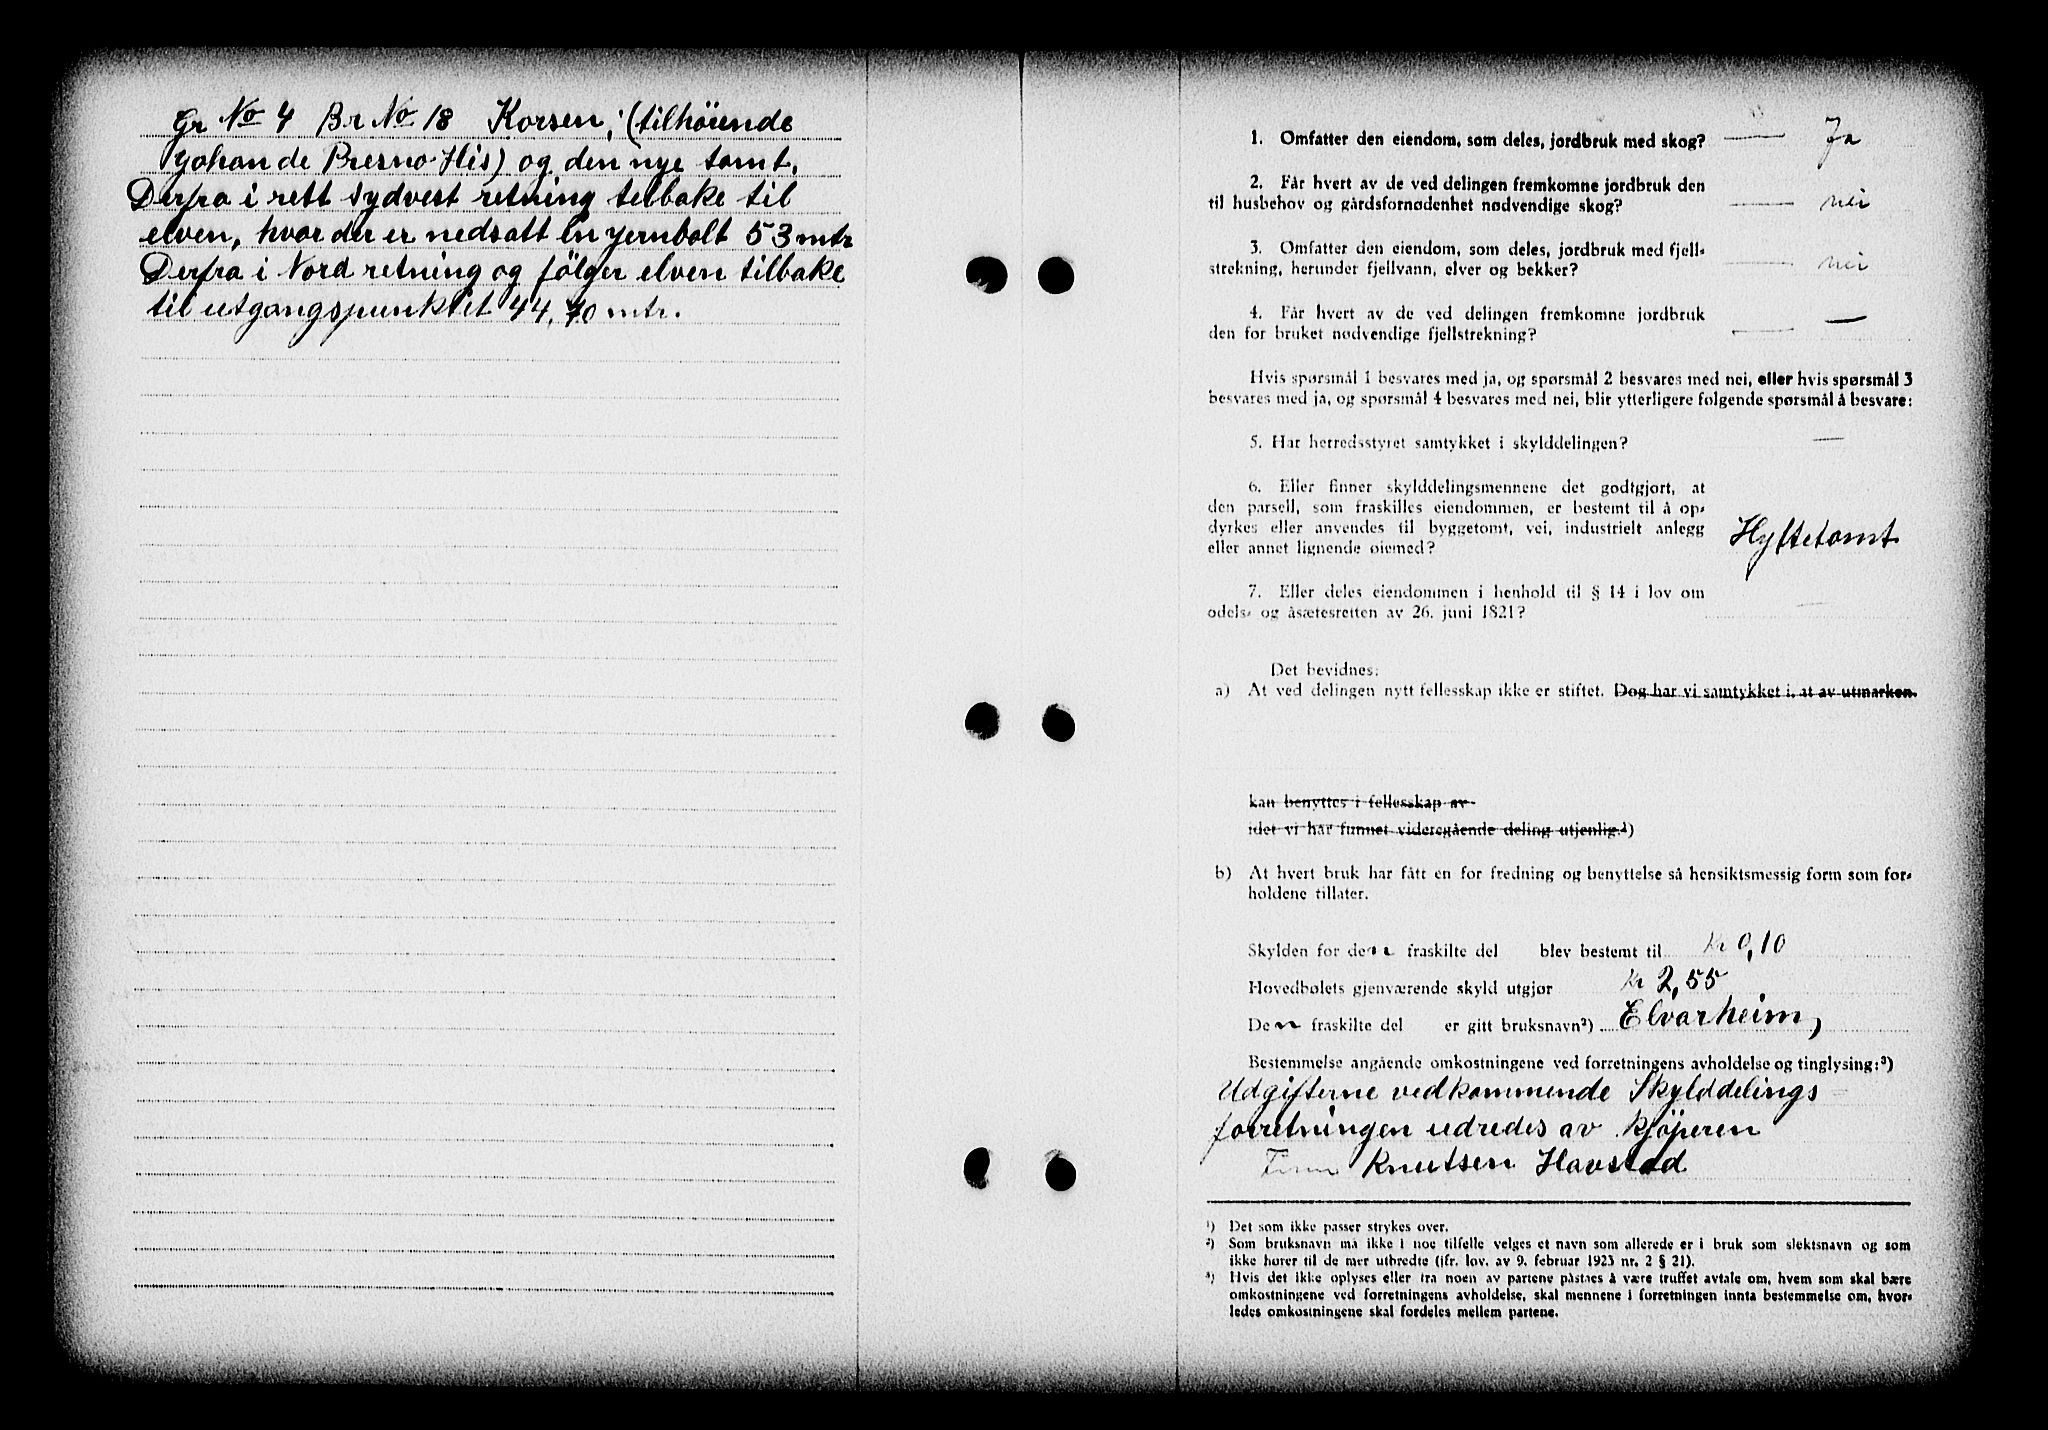 Gr No 4 Br No 18 Korsen, (tilhöiende
Johan de Presno His) og den nye tomt.
Derfra i rett sydvest retning tilbake til
elven, hvor der er nedsatt en jernbolt 53 mtr
Derfra i Nord retning og fölger elven tilbake
til utgangspunktet 44,70 mtr.
1. Omfatter den eiendom, som deles, jordbruk med skog? Ja
2. Får hvert av de ved delingen fremkomne jordbruk den
til husbehov og gårdsfornødenhet nødvendige skog? nei
3. Omfatter den eiendom, som deles, jordbruk med fjell-
strekning, herunder fjellvann, elver og bekker? nei
4. Får hvert av de ved delingen fremkomne jordbruk
den for bruket nødvendige fjellstrekning? —
Hvis spørsmål 1 besvares med ja, og spørsmål 2 besvares med nei, eller hvis spørsmål 3
besvares med ja, og spørsmål 4 besvares med nei, blir ytterligere følgende spørsmål å besvare:
5. Har herredsstyret samtykket i skylddelingen? —
6. Eller finner skylddelingsmennene det godtgjort, at
den parsell, som fraskilles eiendommen, er bestemt til å op-
dyrkes eller anvendes til byggetomt, vei, industrielt anlegg
eller annet lignende øiemed? Hyttetomt
7. Eller deles eiendommen i henhold til § 14 i lov om
odels- og åsætesretten av 26. juni 1821? —
Det bevidnes:
a) At ved delingen nytt fellesskap ikke er stiftet. Dog har vi samtykket i, at av utmarken
kan benyttes i fellesskap av
idet vi har funnet videregående deling utjenlig.¹)
b) At hvert bruk har fått en for fredning og benyttelse så hensiktsmessig form som for-
holdene tillater.
Skylden for den fraskilte del blev bestemt til Kr 0,10
Hovedbølets gjenværende skyld utgjør Kr 2,55
Den fraskilte del er gitt bruksnavn²) Elvarheim,
Bestemmelse angående omkostningene ved forretningens avholdelse og tinglysing:³)
Udgifterne vedkommende Skylddelings
forretningen udredes av kjöperen
Finn Knutsen Havstad
¹) Det som ikke passer strykes over.
²) Som bruksnavn må ikke i noe tilfelle velges et navn som allerede er i bruk som slektsnavn og som
ikke hører til de mer utbredte (jfr. lov. av 9. februar 1923 nr. 2 § 21).
³) Hvis det ikke oplyses eller fra noen av partene påstaes å være truffet avtale om, hvem som skal bære
omkostningene ved forretningens avholdelse, skal mennene i forretningen innta bestemmelse om, hvor-
ledes omkostningene skal fordeles mellem partene.